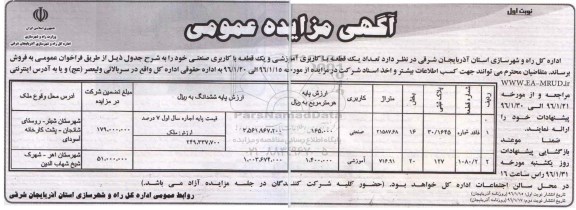 نوبت اول
آگهی مزایده عمومی
جمهوری اسلامی ایران
وزارت راه و شهرسازی
اداره کل راه و شهرسازی آذربایجان شرقی
اداره کل راه و شهرسازی استان آذربایجان شرقی در نظر دارد تعداد یک قطعه با کاربری آموزشی و یک قطعه با کاربری صنعتی خود را به شرح جدول ذیل از طریق فراخوان عمومی به فروش
برساند. متقاضیان محترم می توانند جهت کسب اطلاعات بیشتر و اخذ اسناد شرکت در مزایده از مورخه ۹۶/۱/۱۵ لغایت ۹۶/۱/۲۰ به اداره حقوقی اداره کل واقع در سربالائی ولیعصر (عج) و یا به آدرس اینترنتی
WWW.EA-MRUD.IR
مراجعه و از مورخه
۹۶/۱/۲۱ الی ۹۶/۱/۳۰
پیشنهادات خود را
ارائه نمایند.
ضمنا موعد
بازگشایی پیشنهادات
روز یکشنبه مورخه
۹۶/۱/۳۱ راس ساعت ۱۶
ردیف شماره قطعه پلاک ثبتی بخش متراژ کاربری ارزش پایه هر متر مربع به ریال ارزش پایه ششدانگ به ریال مبلغ تضمین شرکت در مزایده آدرس محل وقوع ملک
۱ فاقد شماره ۳۰/۱۶۴۵ ۱۶ صنعتی ۱۶۵.۰۰۰ قیمت پایه اجاره سال اول ۷ درصد ارزش ملک ۱۷۹.۰۰۰.۰۰۰ شهرستان شیلر - روستای شانجان - پشت کارخانه آسودای
۲ ۱۰۸۰/۲ ۱۴۷ ۲۰ ۷۱۶.۹۱ آموزشی ۱.۴۰۰.۰۰۰ ۱.۰۰۳.۶۷۲.۰۰۰ ۵۱.۰۰۰.۰۰۰ شهرستان اهر - شهرک شیخ شهاب الدین
در محل سالن اجتماعات اداره کل خواهد بود. (حضور کلیه شرکت کنندگان در جلسه مزایده آزاد می باشد.)
روابط عمومی اداره کل راه و شهرسازی استان آذربایجان شرقی